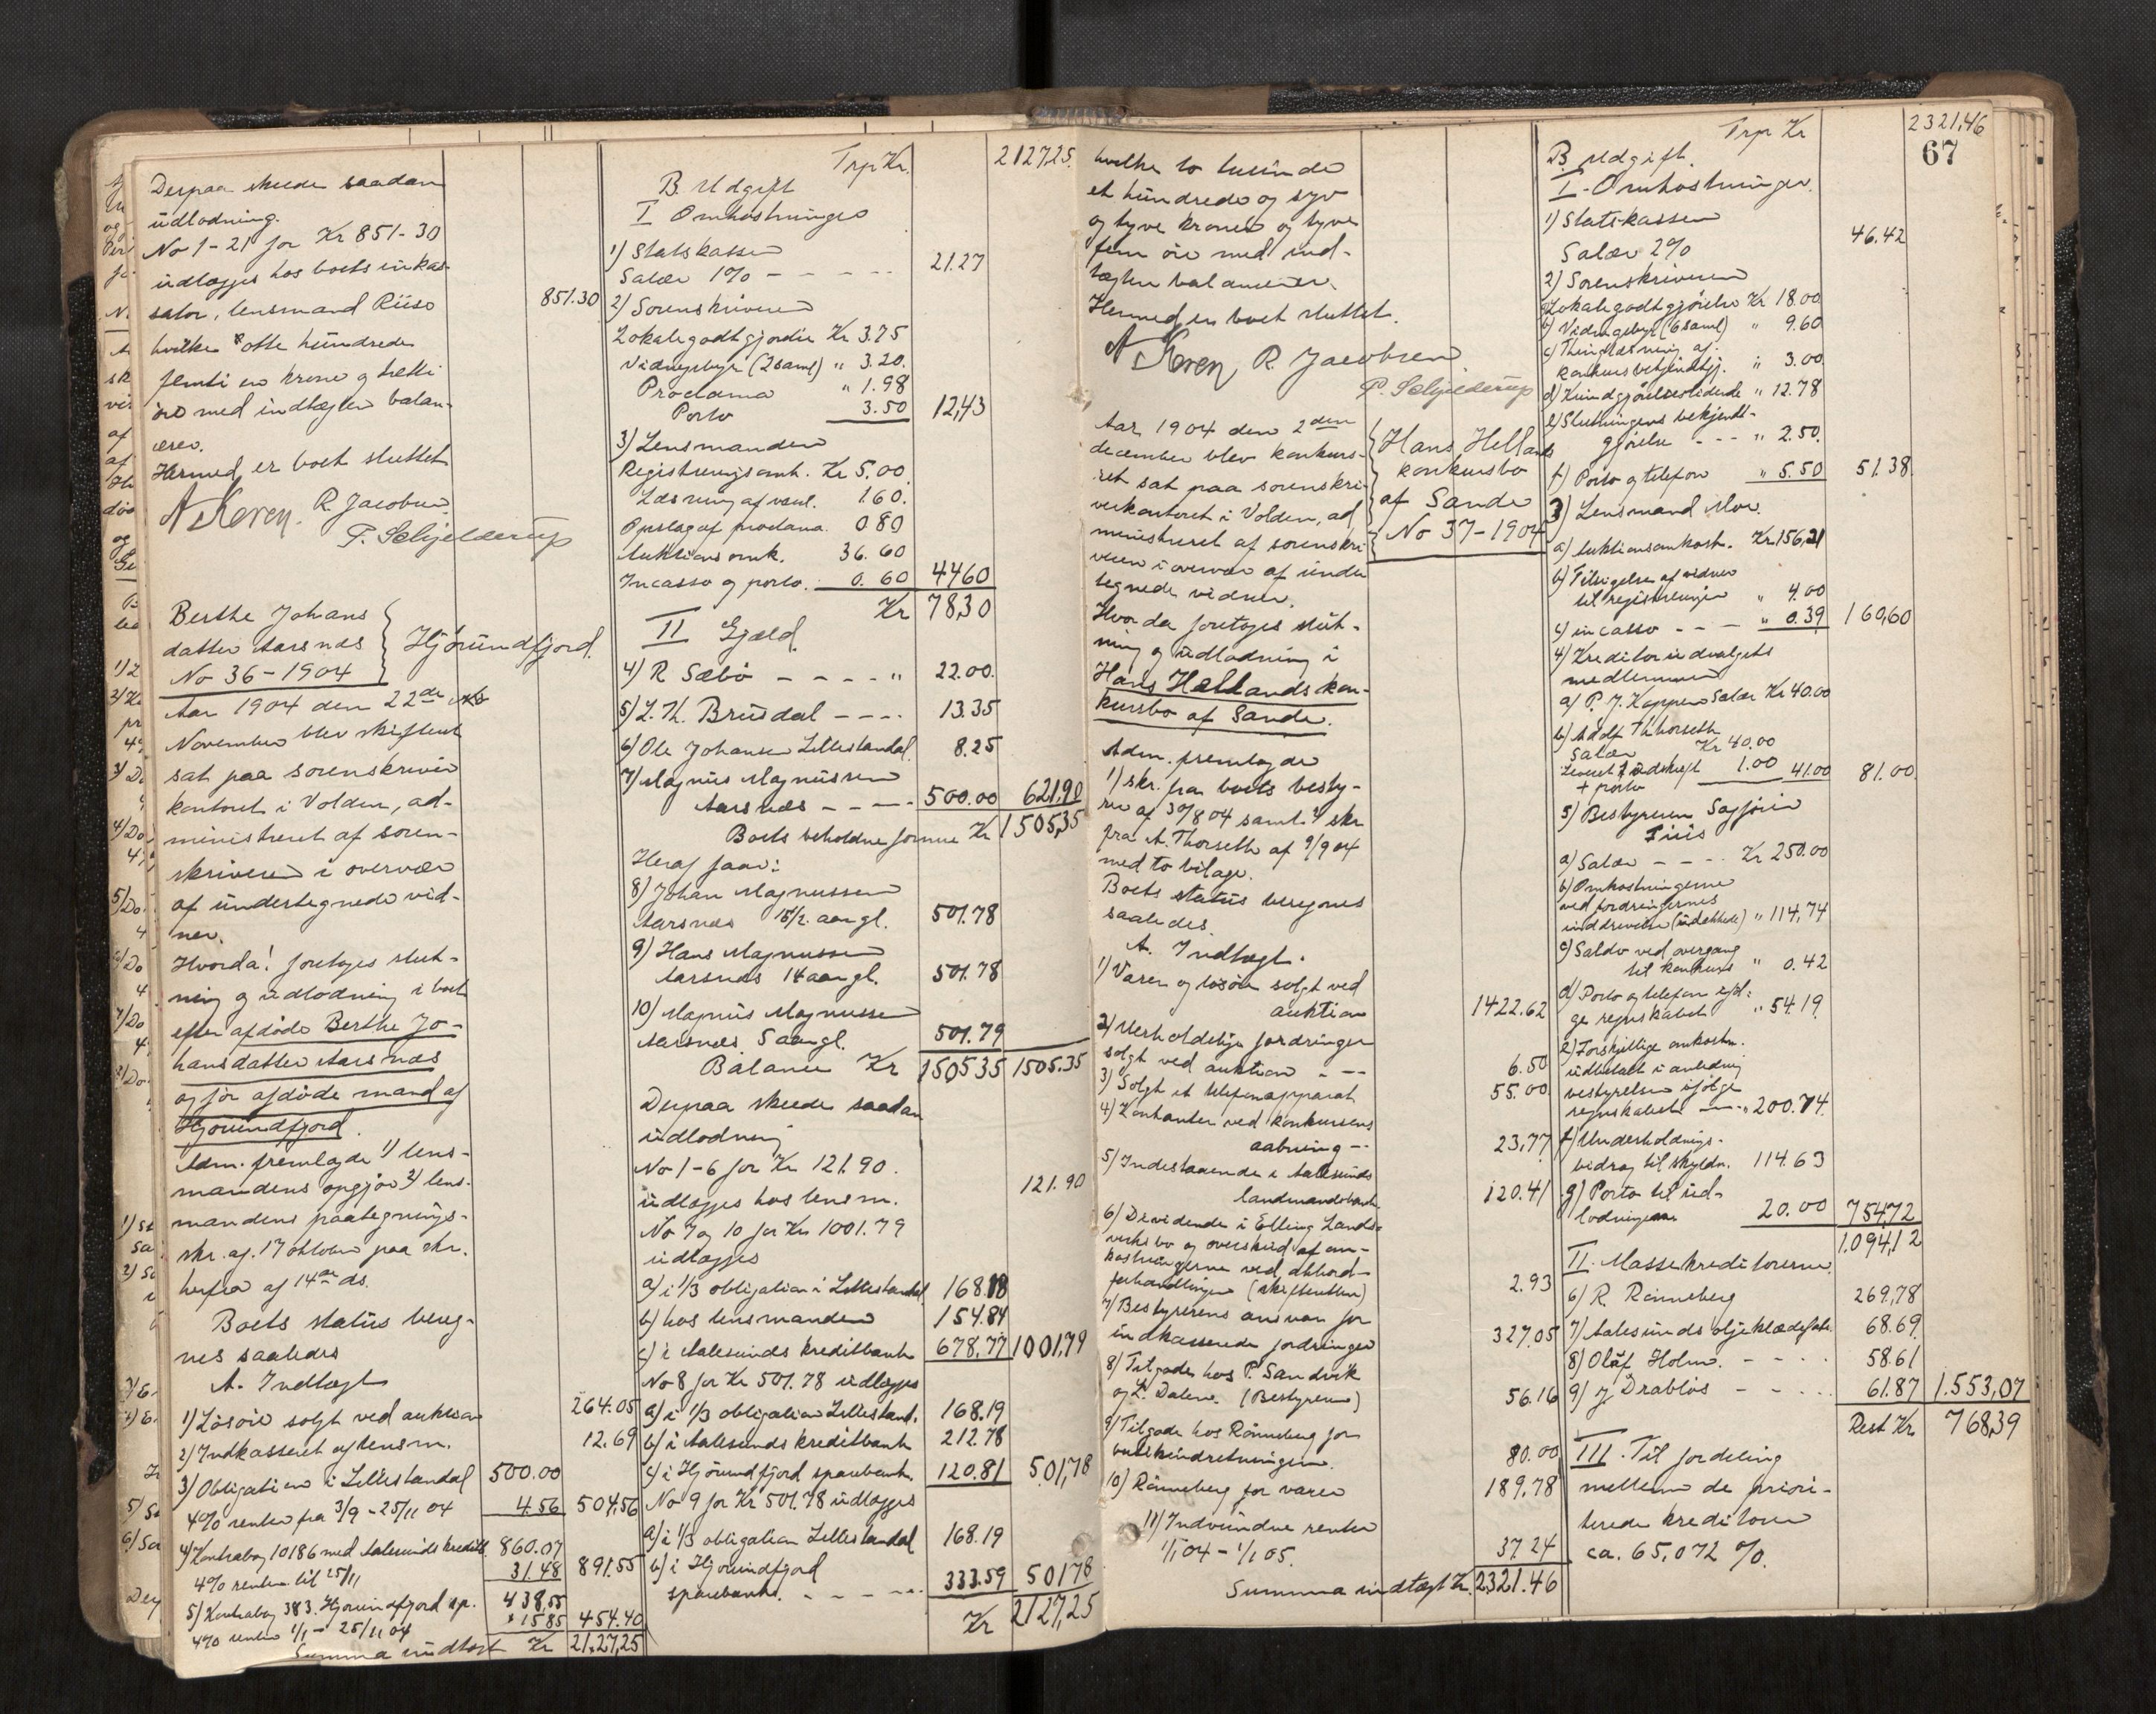 Derpaa skede saadan
üdlodning.
No 1-21 for Kr 851-30
üdlægges hos boets inkas-
sator, lensmand Riise 851.30
hvilke otte hündrede
femti en krone g tretti
öre med indtægten balan-
cerer.
Hermed er boet sluttet
R. Jacobsen
P. Schjelderup
Berthe Johans
datter Aarsnæs
No 36-1904
Hjöründfjord.
Aar 1904 den 22de
November blev skifteret
sat paa sorenskriver
kontoret i Volden, ad-
ministreret af soren-
skriveren i overvær
af ündertegnede vid-
ner.
Hvorda! foretoges slut-
ning g üdlodning i boet
efter afdöde Berthe Jo-
hansdatter Aarsnæs
og för afdöde mand af
Hjörundfjord.
Adm. fremlagde 1) lens-
mandens opgjör 2) lens-
mandens paategnings-
skr. af. 17 oktober paa skr.
herfra af 14de ds.
Boets status bereg-
nes saaledes
A. Indtægt
1) Lösöre solgt ved auktion 264.05
2) Indkasseret af lensm. 12.69
3) Obligation i Lillestandal 500.00
4% renter fra 3/9-25/11 04 4.56 504.56
4) Kontrabog 10186 med Aalesunds kreditb. 860.07
4% renter til 25/11 31.48 891.55
5) Kontrabog 383. Hjörundfjord sp. 438.55
4% renter 1/1 - 25/11 04 15.85 454.40
Summa indtægt Kr 2127,25
Trp Kr. 2127.25
B. Udgift
I Omkostninger
1) Statskassen
Salær 1% - - - - - 21.27
2) Sorenskriveren
Lokalegodtgjörelse Kr 3.75
Vidnegebyr (2 saml) " 3.20.
Proclama " 1.98
Porto 3.50 12,43
3) Lensmanden
Registreringsomk. Kr 5.00
Læsning af 1.60.
Opslag af proclama. 0 80
Auktionsomk. 36.60
Incasso g porto. 0.60 44.60
Kr 78.30
II Gjæld.
4) R Sæbö - - - - " 22.00.
5) L. K. Brüdal - - - - 13.35
6) Ole Johansen Lillestandal 8.25
7) Magnüs Magnüssen
Aarsnæs - - - - 500.00 621.90
Boets beholdne formue Kr 1505,35
Heraf faar:
8) Johan Magnussen
Aarsnæs 15 1/2 aar gl. 501.78
9) Hans Magnussen
Aarsnæs 14 aar gl. 501.78
10) Magnüs Magnussen
Aarsnæs 5 aar gl. 501.79
Balance Kr 1505.35 1505.35
Derpaa skede saadan
üdlodning
No 1-6 for Kr 121.90.
üdlægges hos lensm. 121.90
No 7 og 10 for Kr 1001.79
üdlægges
a) i 1/3 obligation i Lillestandal 168.18
b) hos lensmanden 154.84
c) i Aalesunds kreditbank 678.77 1001,79
No 8 for Kr 501.78 üdlægges
a) i 1/3 obligation Lillestand. 168.19
b) i Aalesunds kreditbank 212.78
c) i Hjörundfjord sparebank. 120.81 501,78
No 9 for Kr 501.78 üdlægges
a) i 1/3 obligation Lillestandal 168.19
b) i Hjörundfjord
sparebank. - - - - 333.59 501.78
Kr 2127,25
hvilke to tusinde
et hündrede og syv
og tyve kroner og tyve
fem öre med ind-
tægten balancerer.
Hermed er boet sluttet.
R. Jacobsen
P. Schjelderup
Aar 1904 den 2den
december blev konkurs-
ret sat paa sorenskri-
verkontoret i Volden, ad
ministreret af sorenskri-
veren i overvær af ünder
tegnede vidner.
Hans Hellands
konkursbo
af Sande
No 37-1904
Hvorda foretoges slüt-
ning g üdlodning i
Hans Hellands kon-
kursbo af Sande.
Adm. fremlagde
1) skr. fra boets besty-
rer af 30/8 04 samt 2) skr
fra A. Thorseth af 9/9 04
med to bilage.
Boets statüs beregnes
saaledes.
A. Indtægt.
1) Varer og lösöre solgt ved
auktion 1422.62
2) Uerholdelige fordringer
solgt ved auktion - - 6.50
3) Solgt et telefonapparat 55.00
4) Kontanter ved konkursens
aabning - - 23,77
5) Indestaaende i Aalesunds
landmandsbank 120.41
6) Dividende i Elling Lands-
verks bo og overskud af om-
kostningerne ved akkord-
forhandlinger (skifteretten) 2.93
7) Bestyrerens ansvar for
indkasserede fordringer 327.05
8) Tilgode hos P. Sandvik
og L. Dalen. (Bestyreren) 56.16
9) Tilgode hos Rönneberg for
butikindretningen. 80.00
10) Rönneberg for varer 189.78
11) Indvündne renter
1/1 04 - 1/1 05. 37 24
Summa indtægt Kr. 2321.46
Trp Kr 2321,46
67
B. Udgift.
I. Omkostninger.
1) Statskassen
Salær 2% 46.42
2) Sorenskriveren
a) Lokalegodtgjörelse Kr 18.00
b) Vidnegebyr (6 saml) " 9.60
c) Thinglæsning af
konkursbekjendtgj. " 3.00
d) Kundgjörelsestidende " 12.78
e) Slutningens bekjendt-
gjörelse - - - " 2.50.
f) Porto g telefon " 5.50 51.38.
3) Lensmand Moe.
a) Auktionsomkost. Kr. 156,21
b) Tilsigelse af vidner
til registreringen " 4.00
c) incasso - - - " 0.39 160,60
4) Kreditorüdvalgets
medlemmer
a) P. J. Koppen Salær Kr 40.00
b) Adolf Thorseth
Salær Kr 40.00
+ porto 1.00 41.00 81.00.
5) Bestyreren Sagförer
a) Salær - - - Kr 250.00
b) Omkostningerne
ved fordringernes
inddrivelse (üdækkede) " 114,74
c) Saldo ved overgang
til konkurs " 0.42
d) Porto og telefon iföl:
ge regnskabet " 54.19.
e) Forskjellige omkostn.
üdbetalt i anledning
bestyrelsen ifölge
regnskabet - - " 200.74.
f) Underholdnings-
bidrag til skyldn. 114.63
g) Porto til üd-
lodningerne 20.00 754,72
1.094,12
II. Massekreditorerne.
6) R. Rönneberg 269,78
7) Aalesunds oljeklædefabr. 68.69
8) Olaf Holm. - - - - 58.61
9) J. Drablös - - - - 61.87 1.553,07
Rest Kr. 768,39
III. Til fordeling
mellem de priori-
terede kreditorer
ca. 65,072 %.